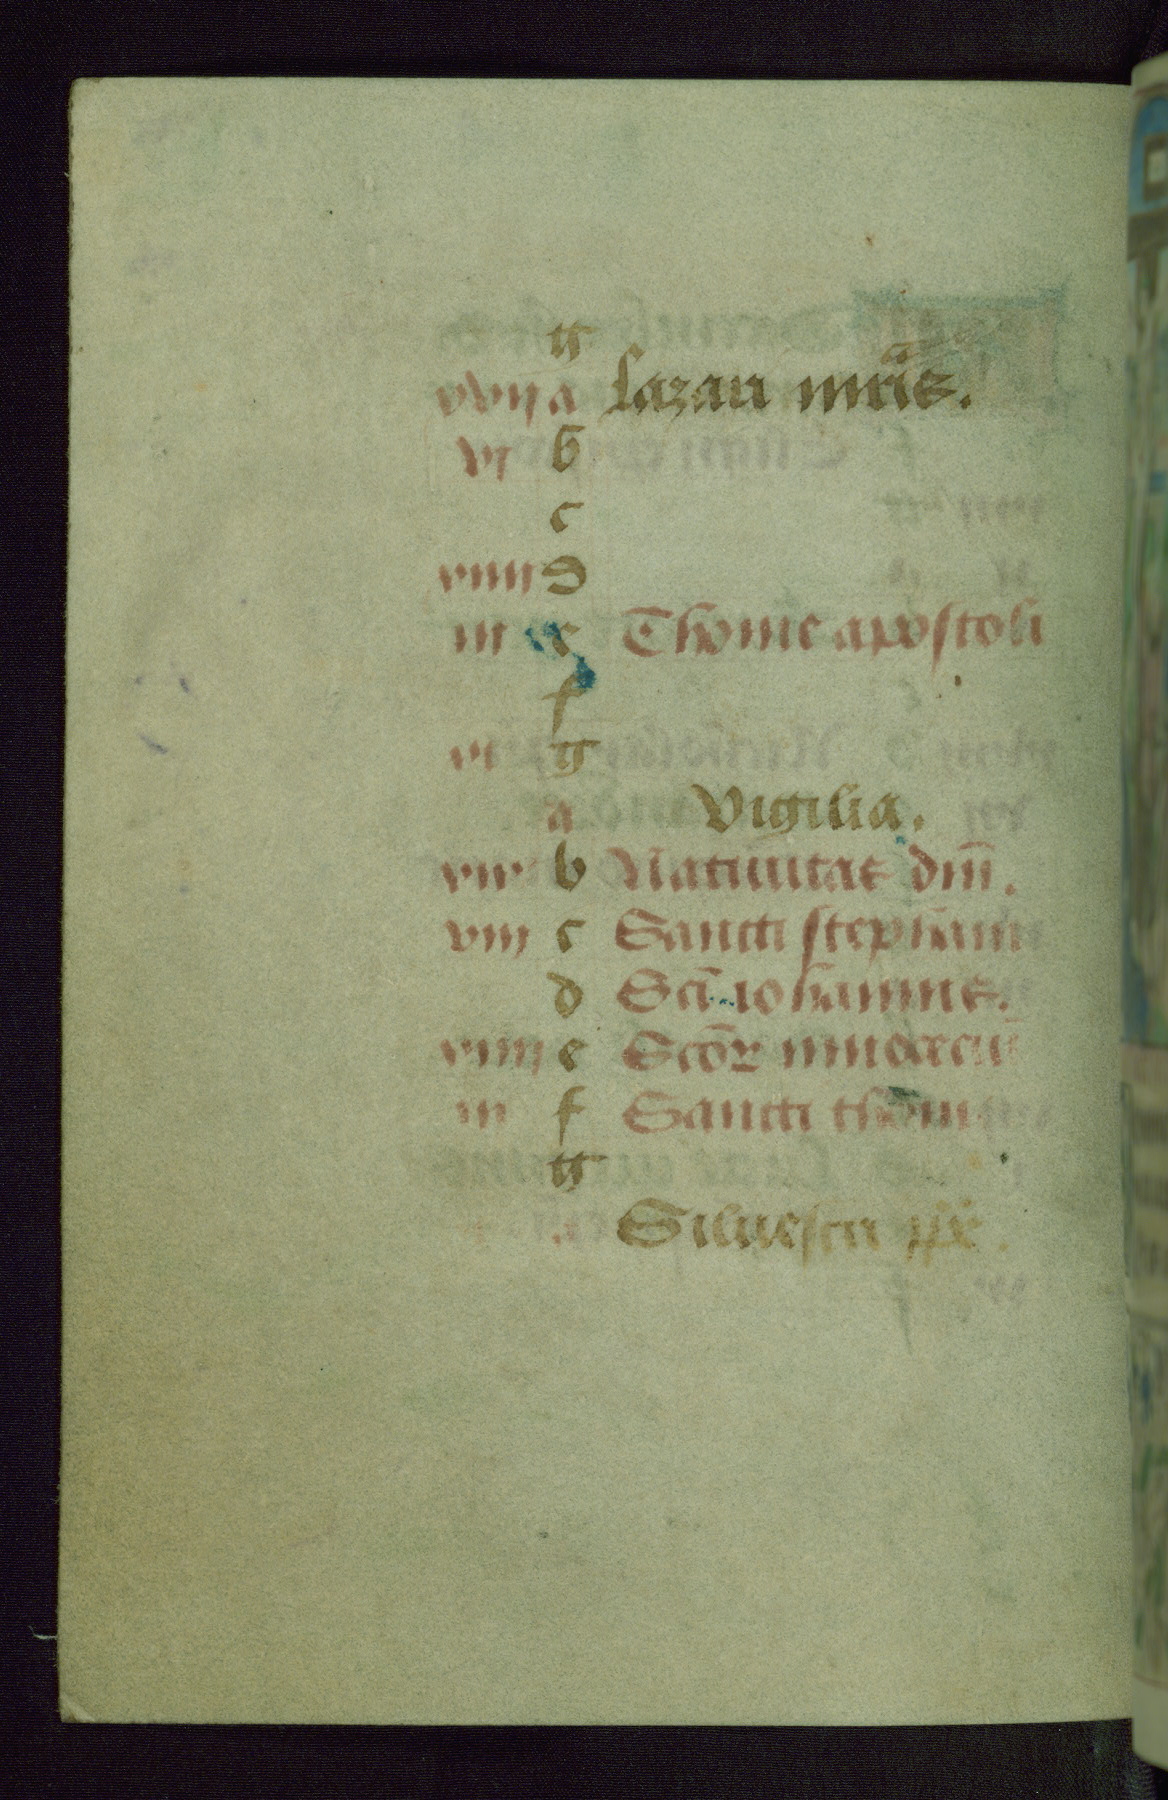 g
xvij a Lazari mr̄is.
vi b
c
xiiii d
iii e Thome apostoli
f
xi g
a Vigilia.
xix b Natiuitas dn̄i.
viii c Sancti stephani
d Sc̄i iohannis.
xvi e Sc̄or̄ innocenciū
v f Sancti thome
g
Siluestri p̄p̄e.